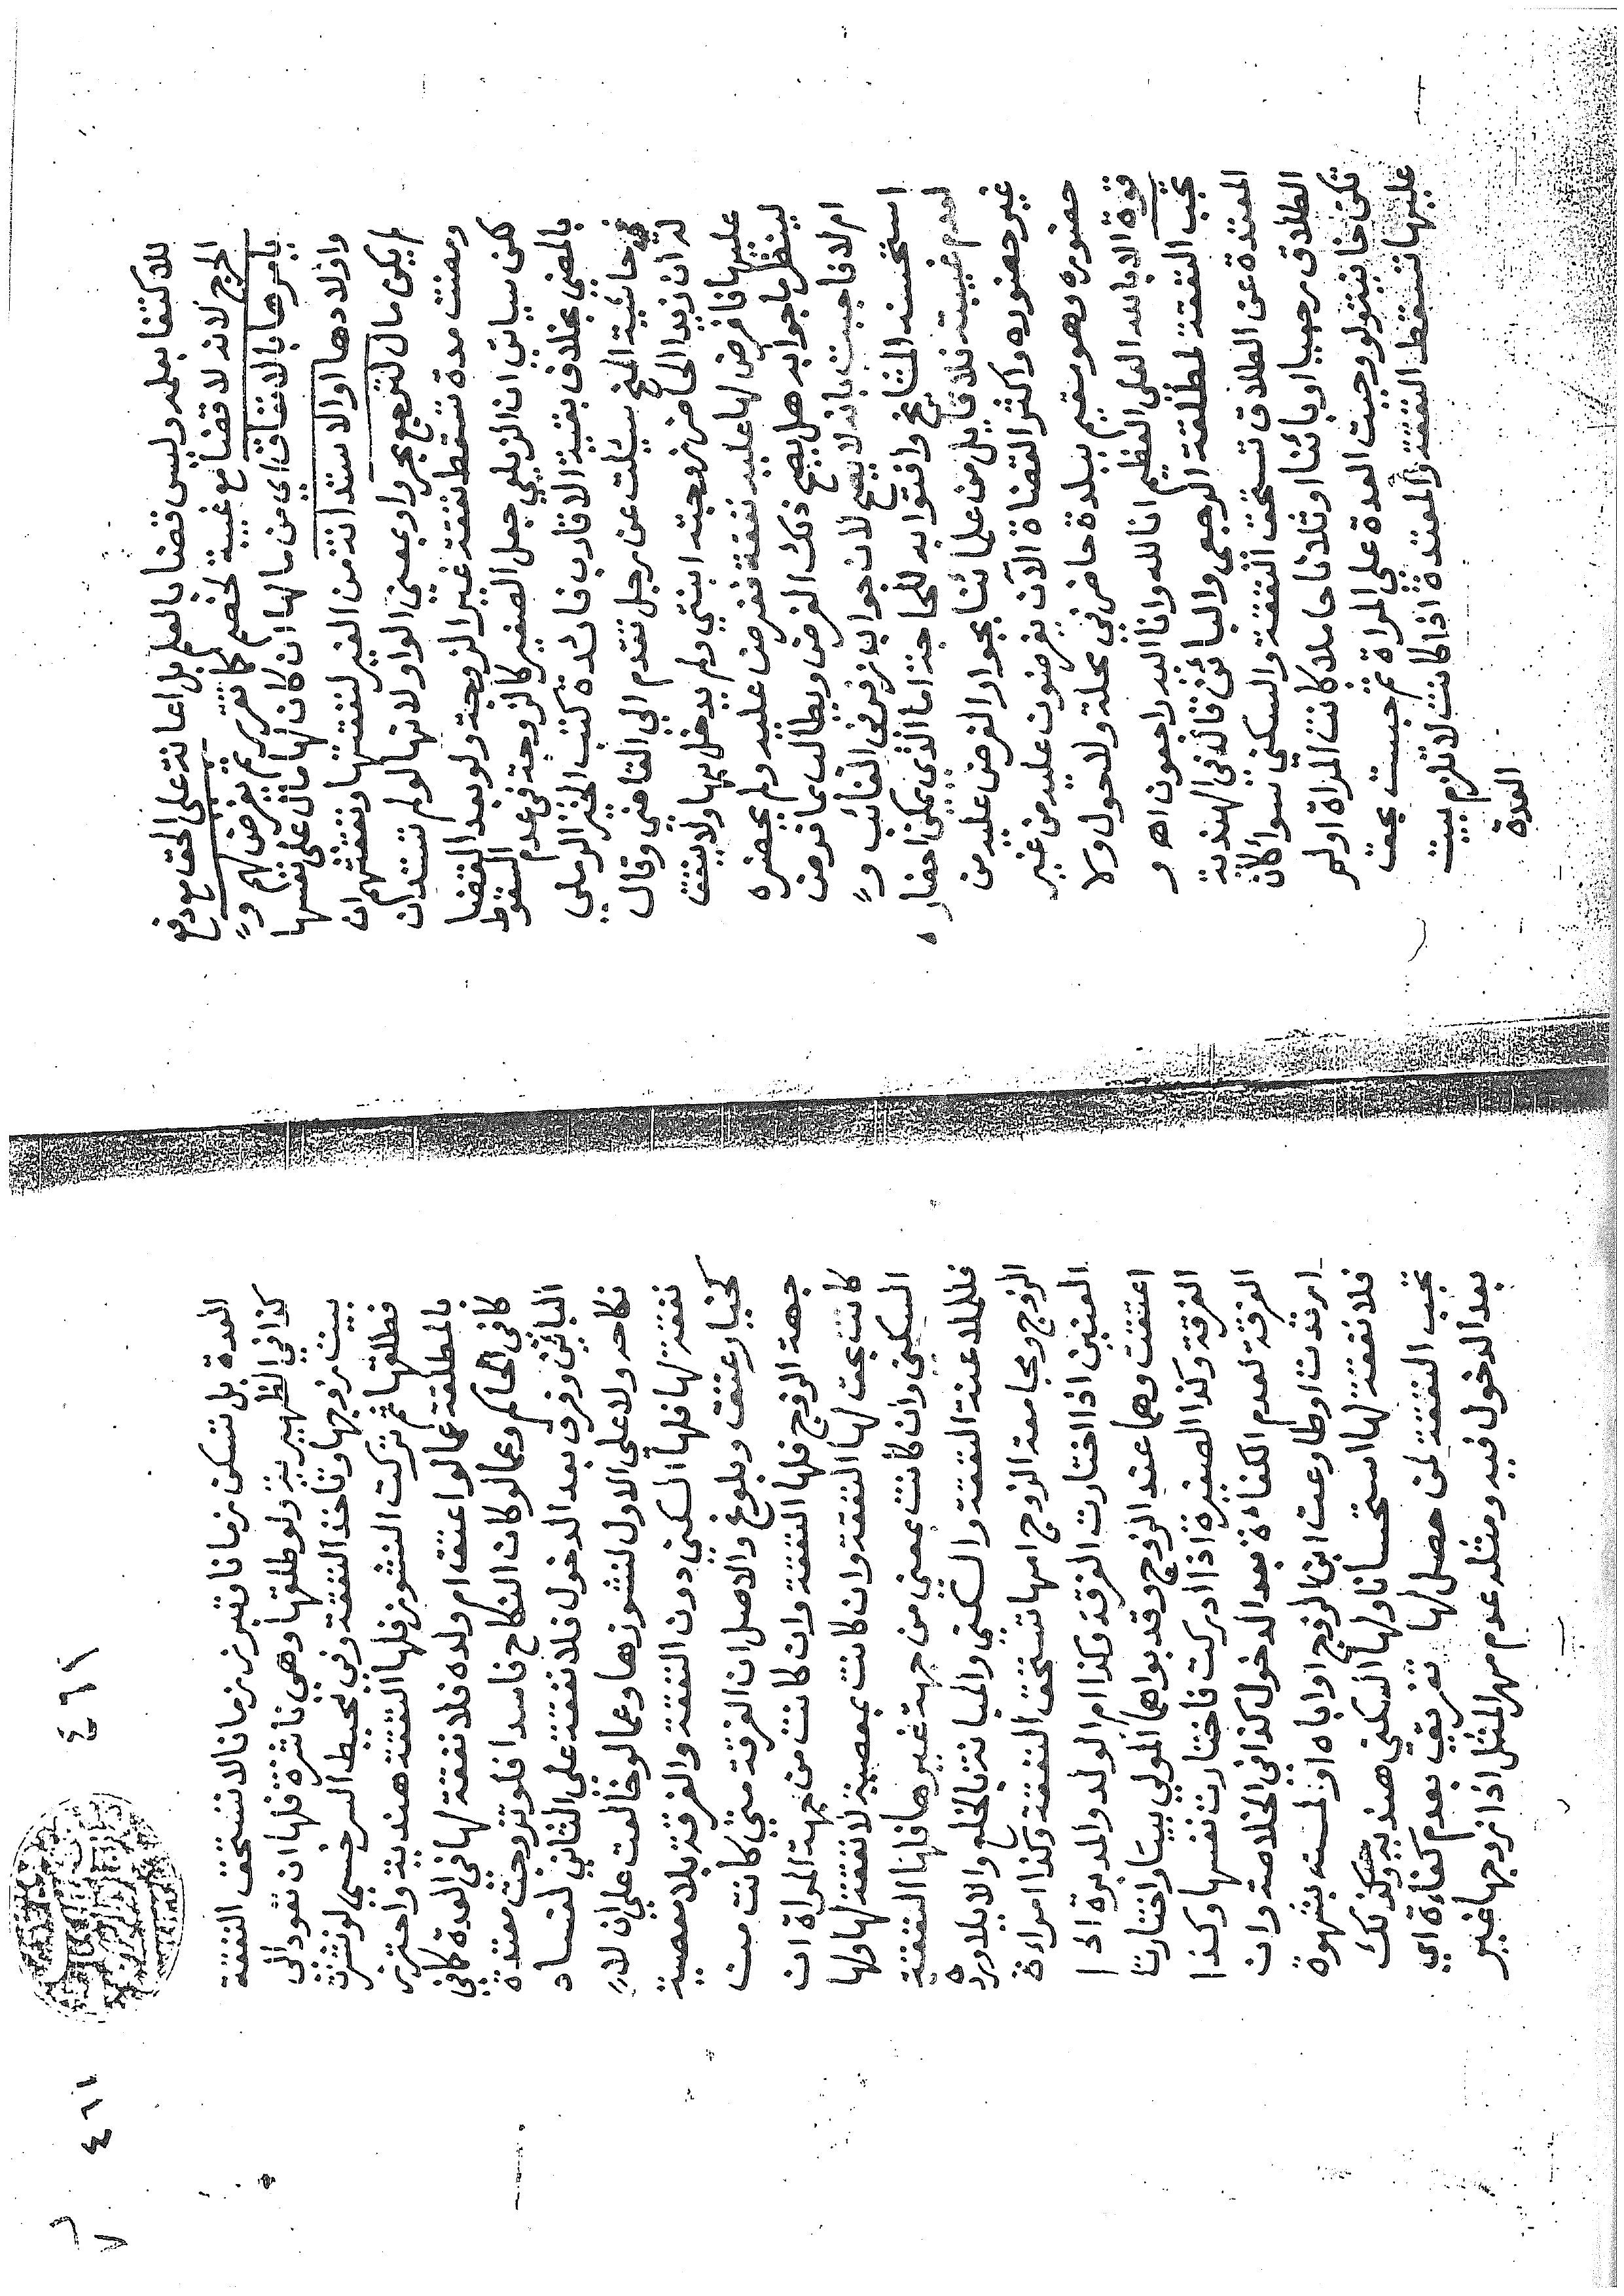 للاكتفا بعلمه وليس قضا بالعلم بل اعانة على الحق مع دفع
الحرج لانه لا قضا مع غيبة لخصم كما تقرر ثم يفرض لهم و
يامرها بالانفاق اي من مالها ان كان لها مال على نفسها
واولادها او الاستدانة من الغير لنفقتها ونفقتهم ان
لم يكن مال لترجع بحر واو بمعنى الواو لانها لو لم تستدان
ومضت مدة تسقط نفقة غير الزوجة ولو بعد القضا
لكن سياتي ان الزيلعي جعل الصغير كالزوجة في عدم السقوط
بالمضي بخلاف بقية الاقارب فائدة كتب الخير الرملي
في حاشية المنح سيلت عن رجل تقدم الي القاضي وقال
له ان زيدا الحاضر زوجته ابنتي ولم يدخل بها ولا ينفق
عليها فافرض لها عليه نفقة ففرض عليه ولم يحضره
لينظر ما جوابه هل يصح ذلك الفرض ويطالب بما فرض
ام لا فاجبت بانه لا يصح لان جواب زفر في الغائب و
استحسنه المشايخ وافتوا به للحاجة اما الذي يمكن احضاره
لعدم غيبته فلا قايل من علمائنا بجواز الفرض عليه من
غير حضوره واكثر القضاة الآن يفرضون عليه من غير
حضوره وهو مقيم ببلدة حاضر في محلة ولا حول ولا
قوة الا بالله العلي العظيم انا لله وانا اليه راجعون اهـ و
تجب النفقة لمطلقة الرجعي والبائن قال في الهندية
المعتدة عن الطلاق تستحق النفقة والسكني سوا كان
الطلاق رجعيا او بائنا او ثلاثا حاملا كانت المراة او لم
تكن خانية ولو وجبت العدة على المراة ثم حبست بحق
عليها تسقط النفقة والمعتدة اذا كانت لا تلزم بيت
العدة
٤٦٩
٤٦١
العدة بل تسكن زمانا وتبرز زمانا لا تستحق النفقة
كذا في الظهيرية ولو طلقها وهي ناشزة فلها ان تعود الى
بيت زوجها وتاخذ النفقة وفي محيط السرخسي لو نشزت
فطلقها ثم تركت النشوز فلها النفقة هندية واحترز
بالمطلقة عما لو اعتق ام ولده فلا نفقة لها في العدة كما في
كافي الحاكم وعما لو كان النكاح فاسدا فلو تزوجت معتدة
البائن وفرق بعد الدخول فلا نفقة على الثاني لفساد
نكاحه ولا علي الاول لنشوزها وعما لو خالعت علي ان لا
نفقة لها فلها السكني دون النفقة والفرقة بلا معصية
كخيار عتق وبلوغ والاصل ان الفرقة متي كانت من
جهة الزوج فلها النفقة وان كانت من جهة المراة ان
كانت بحق لها النفقة وان كانت بمعصية لا نفقة لها ولها
السكني وان كانت بمعني من جهة غيرها فلها النفقة
فللملاعنة النفقة والسكني والمبانة بالخلع والايلا وردة
الزوج ومجامعة الزوج امها تستحق النفقة وكذا امراءة
العنين اذا اختارت الفرقة وكذا ام الولد والمدبرة اذا
اعتقت وهما عند الزوج وقد بواهما المولي بيتا واختارتا
الفرقة وكذا الصغيرة اذا ادركت فاختارت نفسها وكذا
الفرقة لعدم الكفاءة بعد الدخول كذا في الخلاصة وان
ارتدت او طاوعت ابن الزوج او اباه او لمسته بشهوة
فلا نفقة لها استحسانا ولها السكني هندية وكذلك
تجب النفقة لمن حصل لها تفريق بعدم كفاءة اي
بعد الدخول فيه ومثله عدم مهر المثل اذا زوجها غير